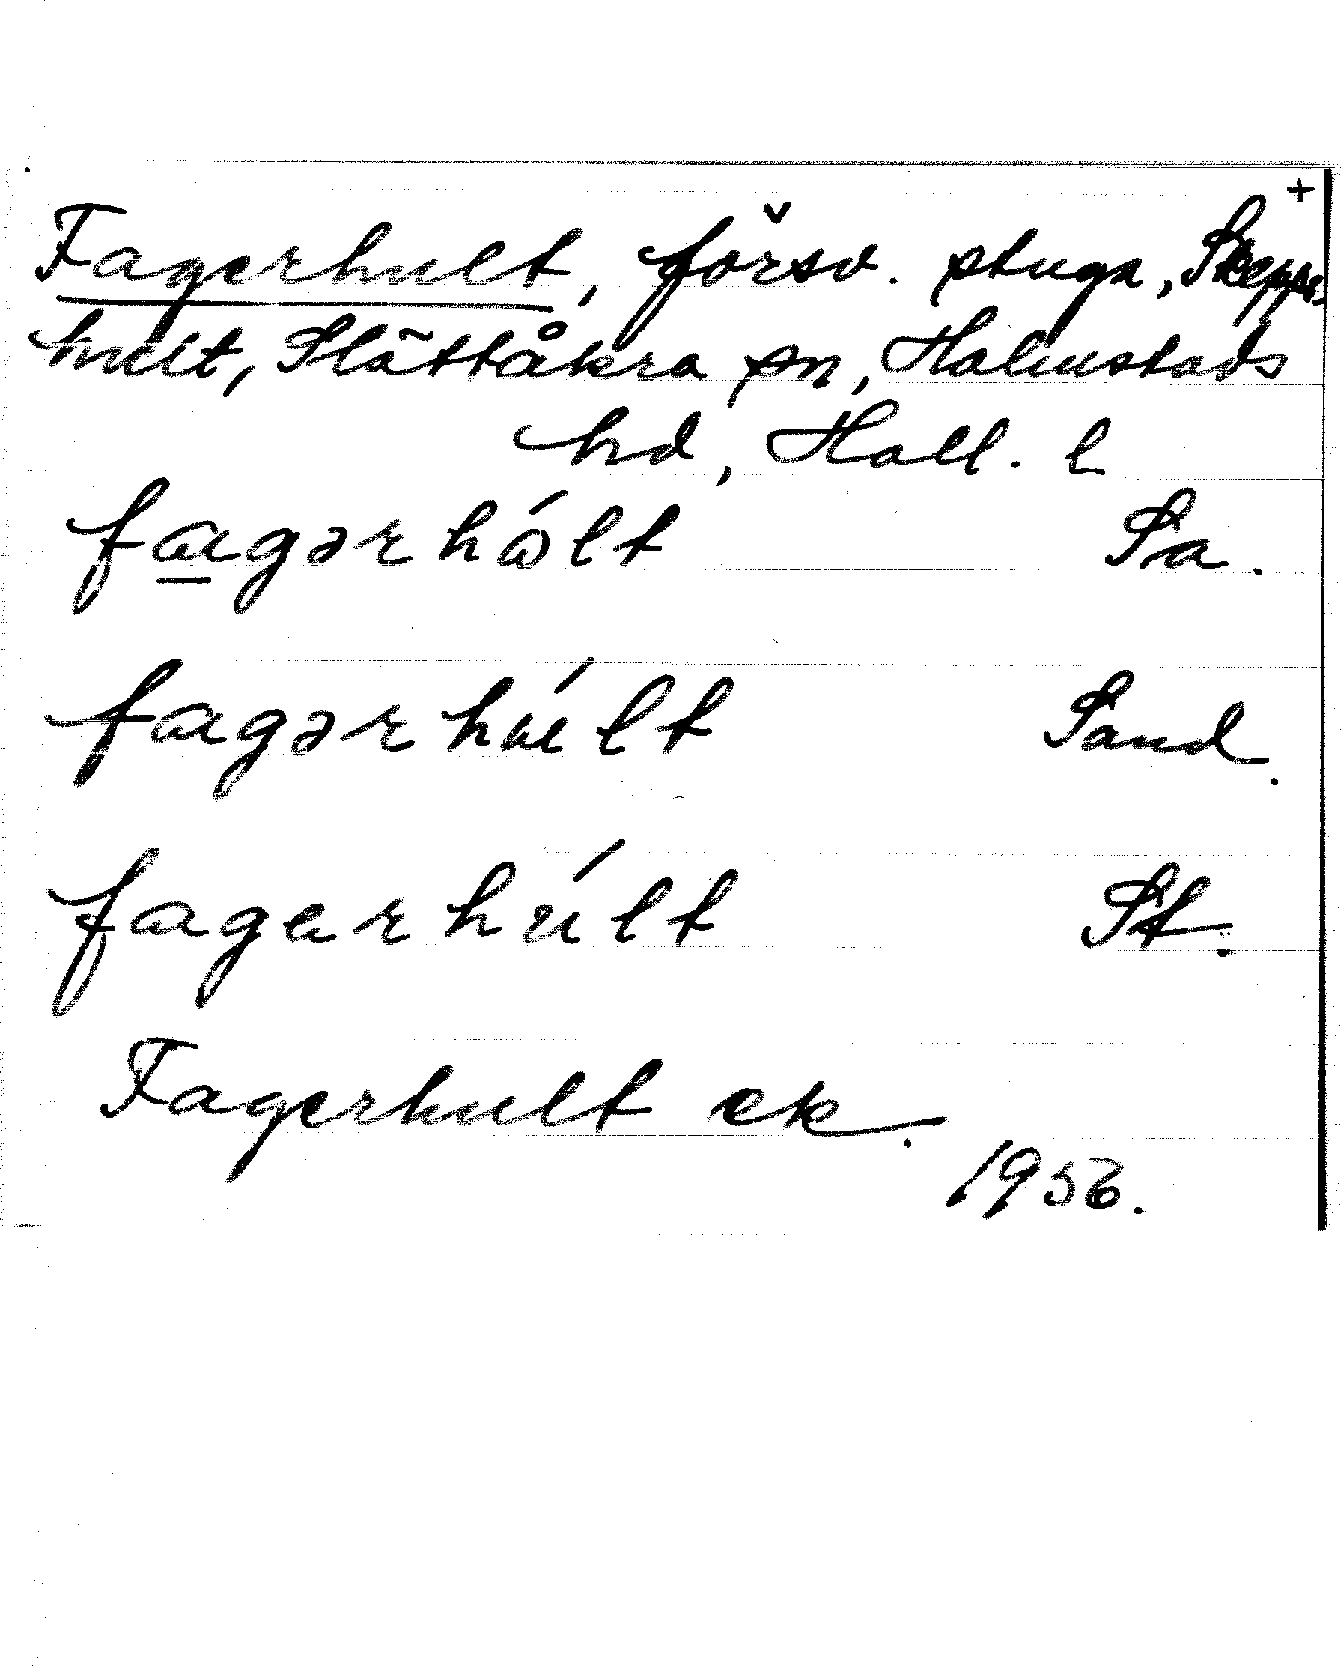 +
Fagerhult, försv. stuga, Skepps-
hult, Slättåkra sn, Halmstads
hd, Hall. l
fagərhó̤lt Sa.
fagərhúlt Sand.
fagerhúlt St.
Fagerhult ek.
1956.